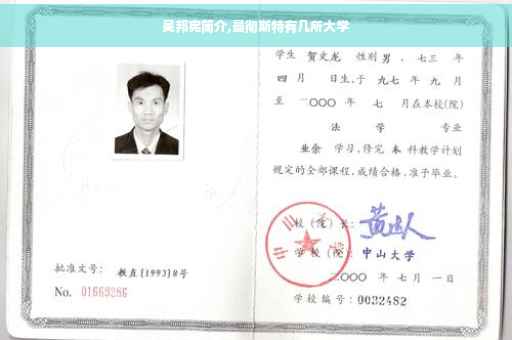 吴邦宪简介,曼彻斯特有几所大学
学生 贺文龙 性别 男 、七三 年
四 月 日生,于 九七 年 九 月
至 二〇〇〇 年 七 月在本校(院)
法 学 专业
业余 学习,修完 本 科教学计划
规定的全部课程,成绩合格,准予毕业。
校(院)长:
学校(院): 中山大学
二〇〇〇 年 七 月 一 日
学校编号: 0032482
批准文号: 教直[1993]8号
No. 01669286